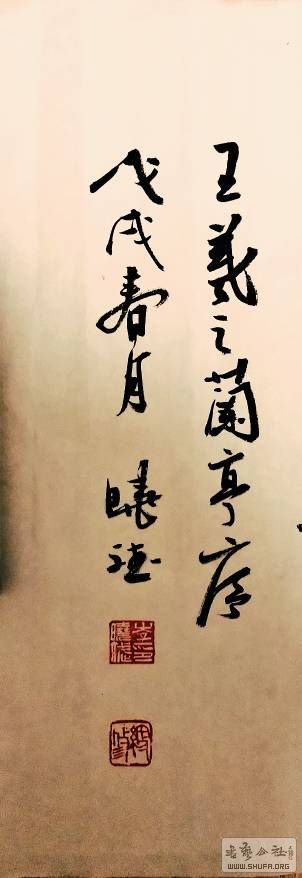 王羲之蘭亭序
戊戌春月
曉德
書藝公社
WWW.SHUFA.ORG